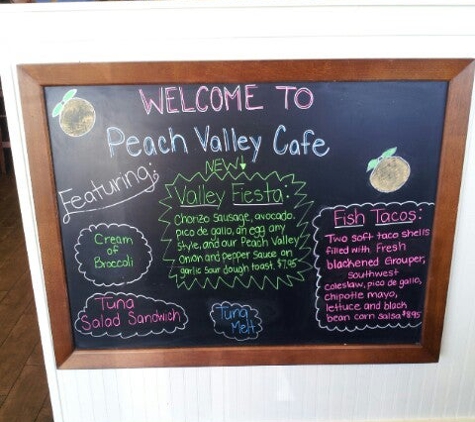 WELCOME TO
Peach Valley Cafe
Featuring:
NEW!
Valley Fiesta:
Chorizo Sausage, avocado,
pico de gallo, an egg any
style, and our Peach Valley
onion and pepper sauce on
garlic sour dough toast. $7.95
Cream
of
Broccoli
Tuna
Salad Sandwich
Tuna
Melt
Fish Tacos:
Two soft taco shells
filled with Fresh
blackened Grouper,
Southwest
coleslaw, pico de gallo,
chipotle mayo,
lettuce and black
bean corn salsa $8.95